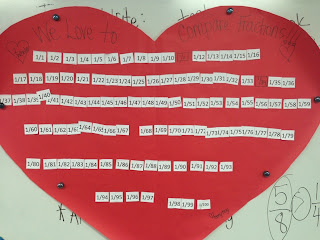 We Love to Compare fractions!!!
1/1 1/2 1/3 1/4 1/5 1/6 1/7 1/8 1/9 1/10 1/12 1/13 1/14 1/15 1/16
1/17 1/18 1/19 1/20 1/21 1/22 1/23 1/24 1/25 1/26 1/27 1/28 1/29 1/30 1/31 1/32 1/33 1/35 1/36
1/37 1/38 1/39 1/40 1/41 1/42 1/43 1/44 1/45 1/46 1/47 1/48 1/49 1/50 1/51 1/52 1/53 1/54 1/55 1/56 1/57 1/58 1/59
1/60 1/61 1/62 1/63 1/64 1/65 1/66 1/67 1/68 1/69 1/70 1/71 1/72 1/73 1/74 1/75 1/76 1/77 1/78 1/79
1/80 1/81 1/82 1/83 1/84 1/85 1/86 1/87 1/88 1/89 1/90 1/91 1/92 1/93
1/94 1/95 1/96 1/97
1/98 1/99 1/100
5/8 > 1/4